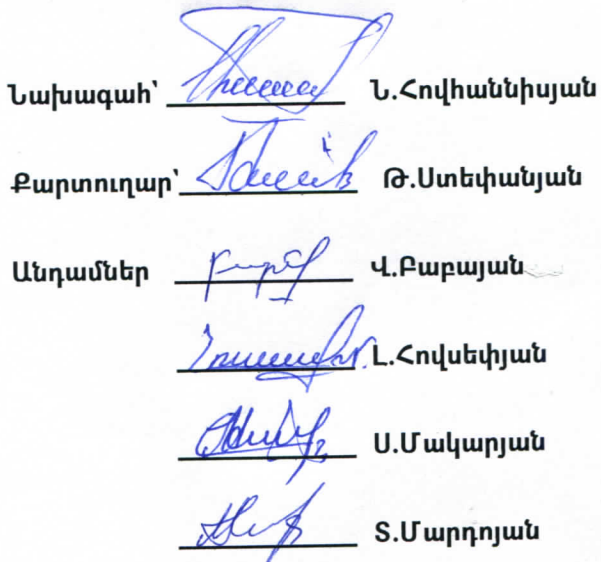 Նախագահ՝ Ն.Հովհաննիսյան
Քարտուղար՝ Թ.Ստեփանյան
Անդամներ Վ.Բաբայան
Լ.Հովսեփյան
Ս.Մակարյան
Տ.Մարդոյան